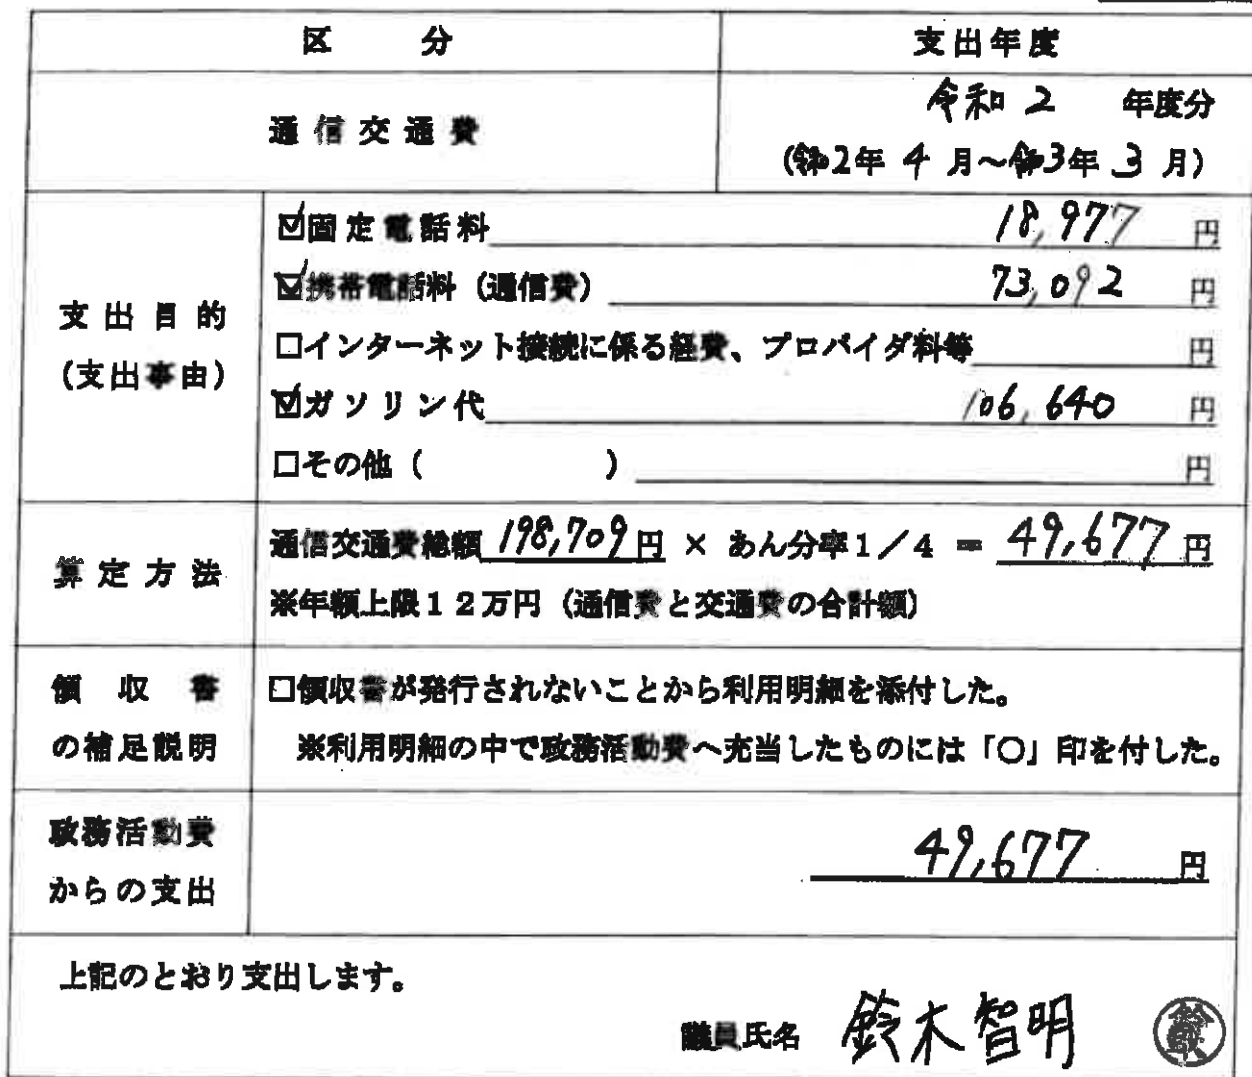 区 分 支出年度
通信交通費
令和2 年度分
(令和2年4月～令和3年3月)
支出目的
(支出事由)
☑固定電話料 18,977 円
☑携帯電話料(通信費) 73,092 円
□インターネット接続に係る経費、プロバイダ料等 円
☑ガソリン代 106,640 円
□その他( ) 円
算定方法
通信交通費総額 198,709円 × あん分率1/4 = 49,677円
※年額上限12万円(通信費と交通費の合計額)
領収書
の補足説明
□領収書が発行されないことから利用明細を添付した。
※利用明細の中で政務活動費へ充当したものには「○」印を付した。
政務活動費
からの支出
49,677 円
上記のとおり支出します。
議員氏名 鈴木智明